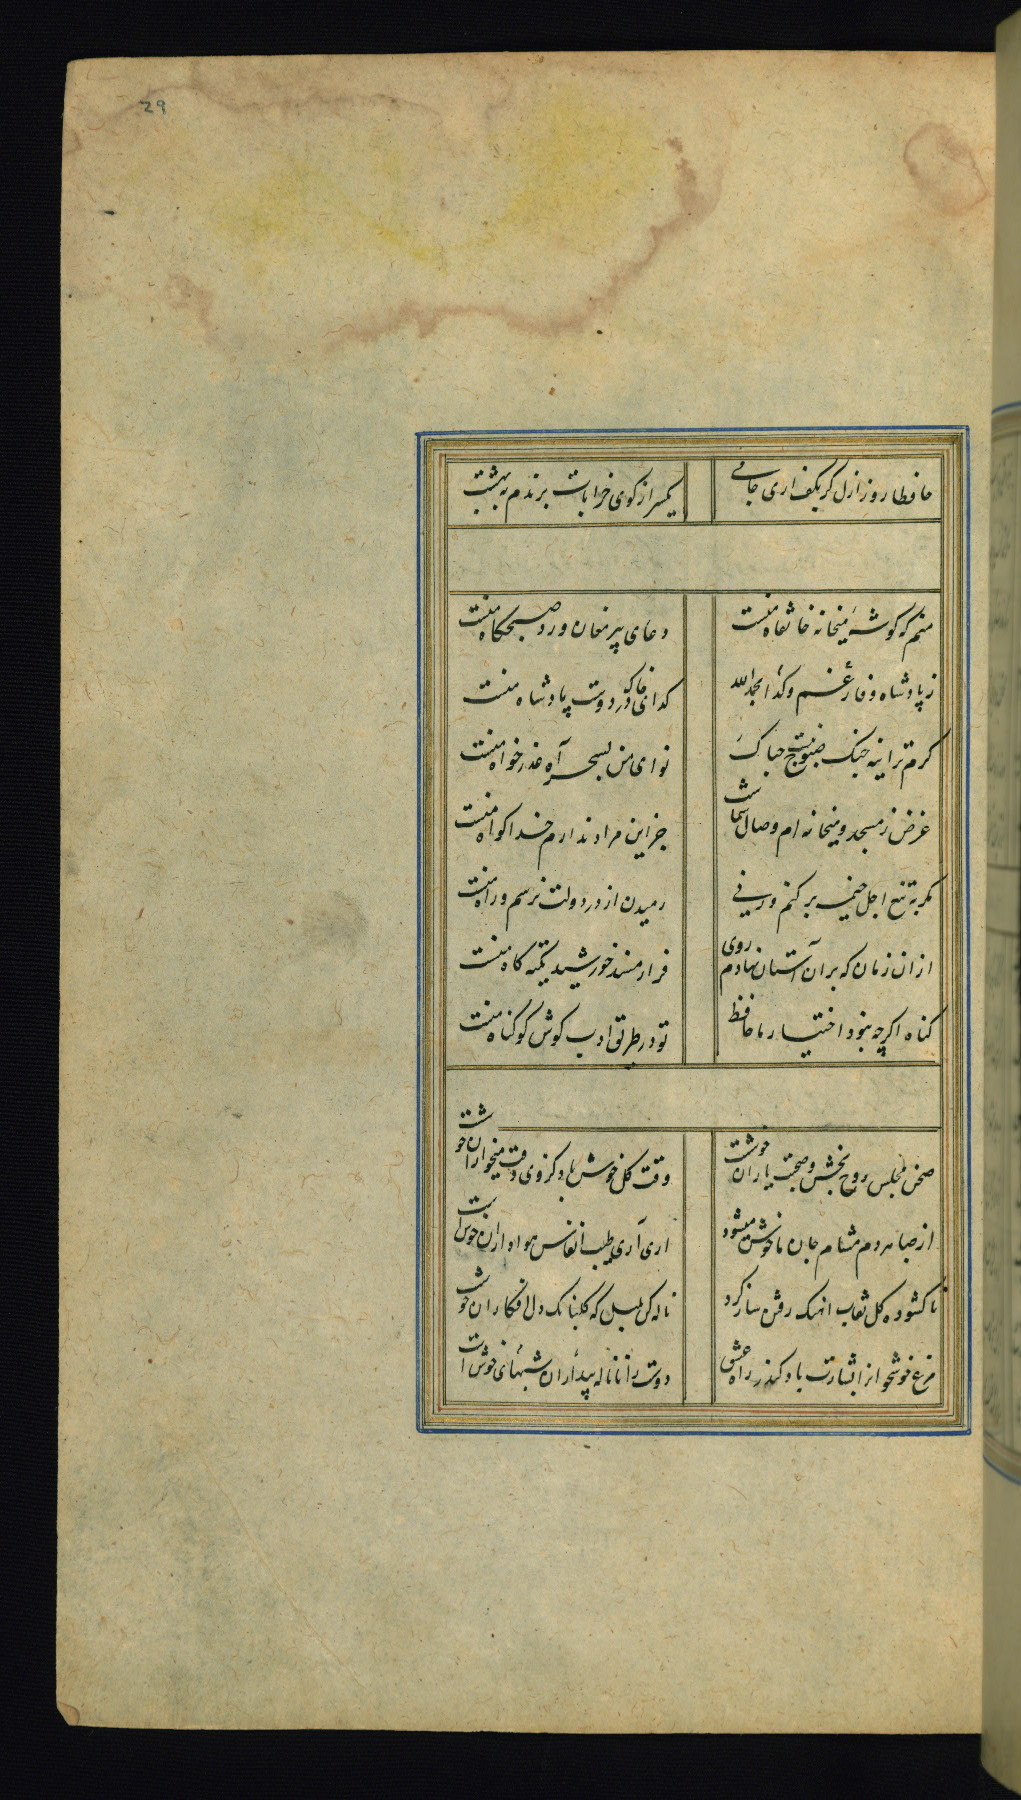 29
حافظا روز ازل گر بکف اری جامی
یکسر از کوی خرابات برندم به بهشت
منم که گوشهٔ میخانه خانقاه منست
دعای پیر مغان ورد صبحکاه منست
ز پادشاه و فارغم و کدا بحمد الله
کدای خاک در دوست پادشاه منست
کرم ترانه چنک صبوح نیست چه باک
نوای من بسحر آه عذر خواه منست
غرض ز مسجد و میخانه ام وصال شماست
جز این مراد ندارم خدا کواه منست
مکر به تیغ اجل خیمه بر کنم ور نی
رمیدن از در دولت نه رسم و راه منست
از ان زمان که بر آن آستان نهادم روی
فراز مسند خورشید تکیه کاه منست
کناه اکرچه نبود اختیار ما حافظ
تو در طریق ادب کوش کو کناه منست
صحن مجلس روح بخش و صحبت یاران خوشت
وقت کل خوش باد کز وی وقت میخواران خوشت
از صبا هر دم مشام جان ما خوش میشود
اری آری طیب انفاس هوا داران خوش است
ناکشوده کل نقاب اهنک رفتن ساز کرد
ناله کن بلبل که کلبانک دل افکاران خوشت
مرغ خوشخوانرا بشارت باد کندر راه عشق
دوست را با ناله بیداران شبهای خوش است